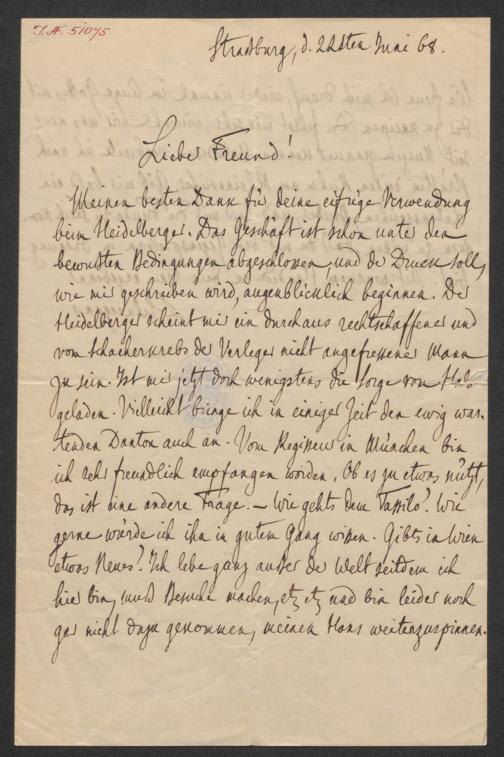 I.N. 51075
Straßburg, d. 22sten Juni 68.
Lieber Freund!
Meinen besten Dank für deine eifrige Verwendung
beim Heidelberger. Das Geschäft ist schon unter den
bewußten Bedingungen abgeschlossen, und der Druck soll,
wie mir geschrieben wird, augenblicklich beginnen. Der
Heidelberger scheint mir ein durchaus rechtschaffener und
vom Schacherkrebs der Verleger nicht angefressener Mann
zu sein. Ist mir jetzt doch wenigstens die Sorge vom Halse
geladen. Vielleicht bringe ich in einiger Zeit den ewig war-
tenden Danton auch an. Vom Regisseur in München bin
ich sehr freundlich empfangen worden. Ob es zu etwas nützt,
das ist eine andere Frage. – Wie gehts dem Tassilo? Wie
gerne würde ich ihn in gutem Gang wissen. Gibts in Wien
etwas Neues? Ich lebe ganz außer der Welt seitdem ich
hier bin, muß Besuche machen, etz etz und bin leider noch
gar nicht dazu gekommen, meinen Hans weiterzuspinnen.